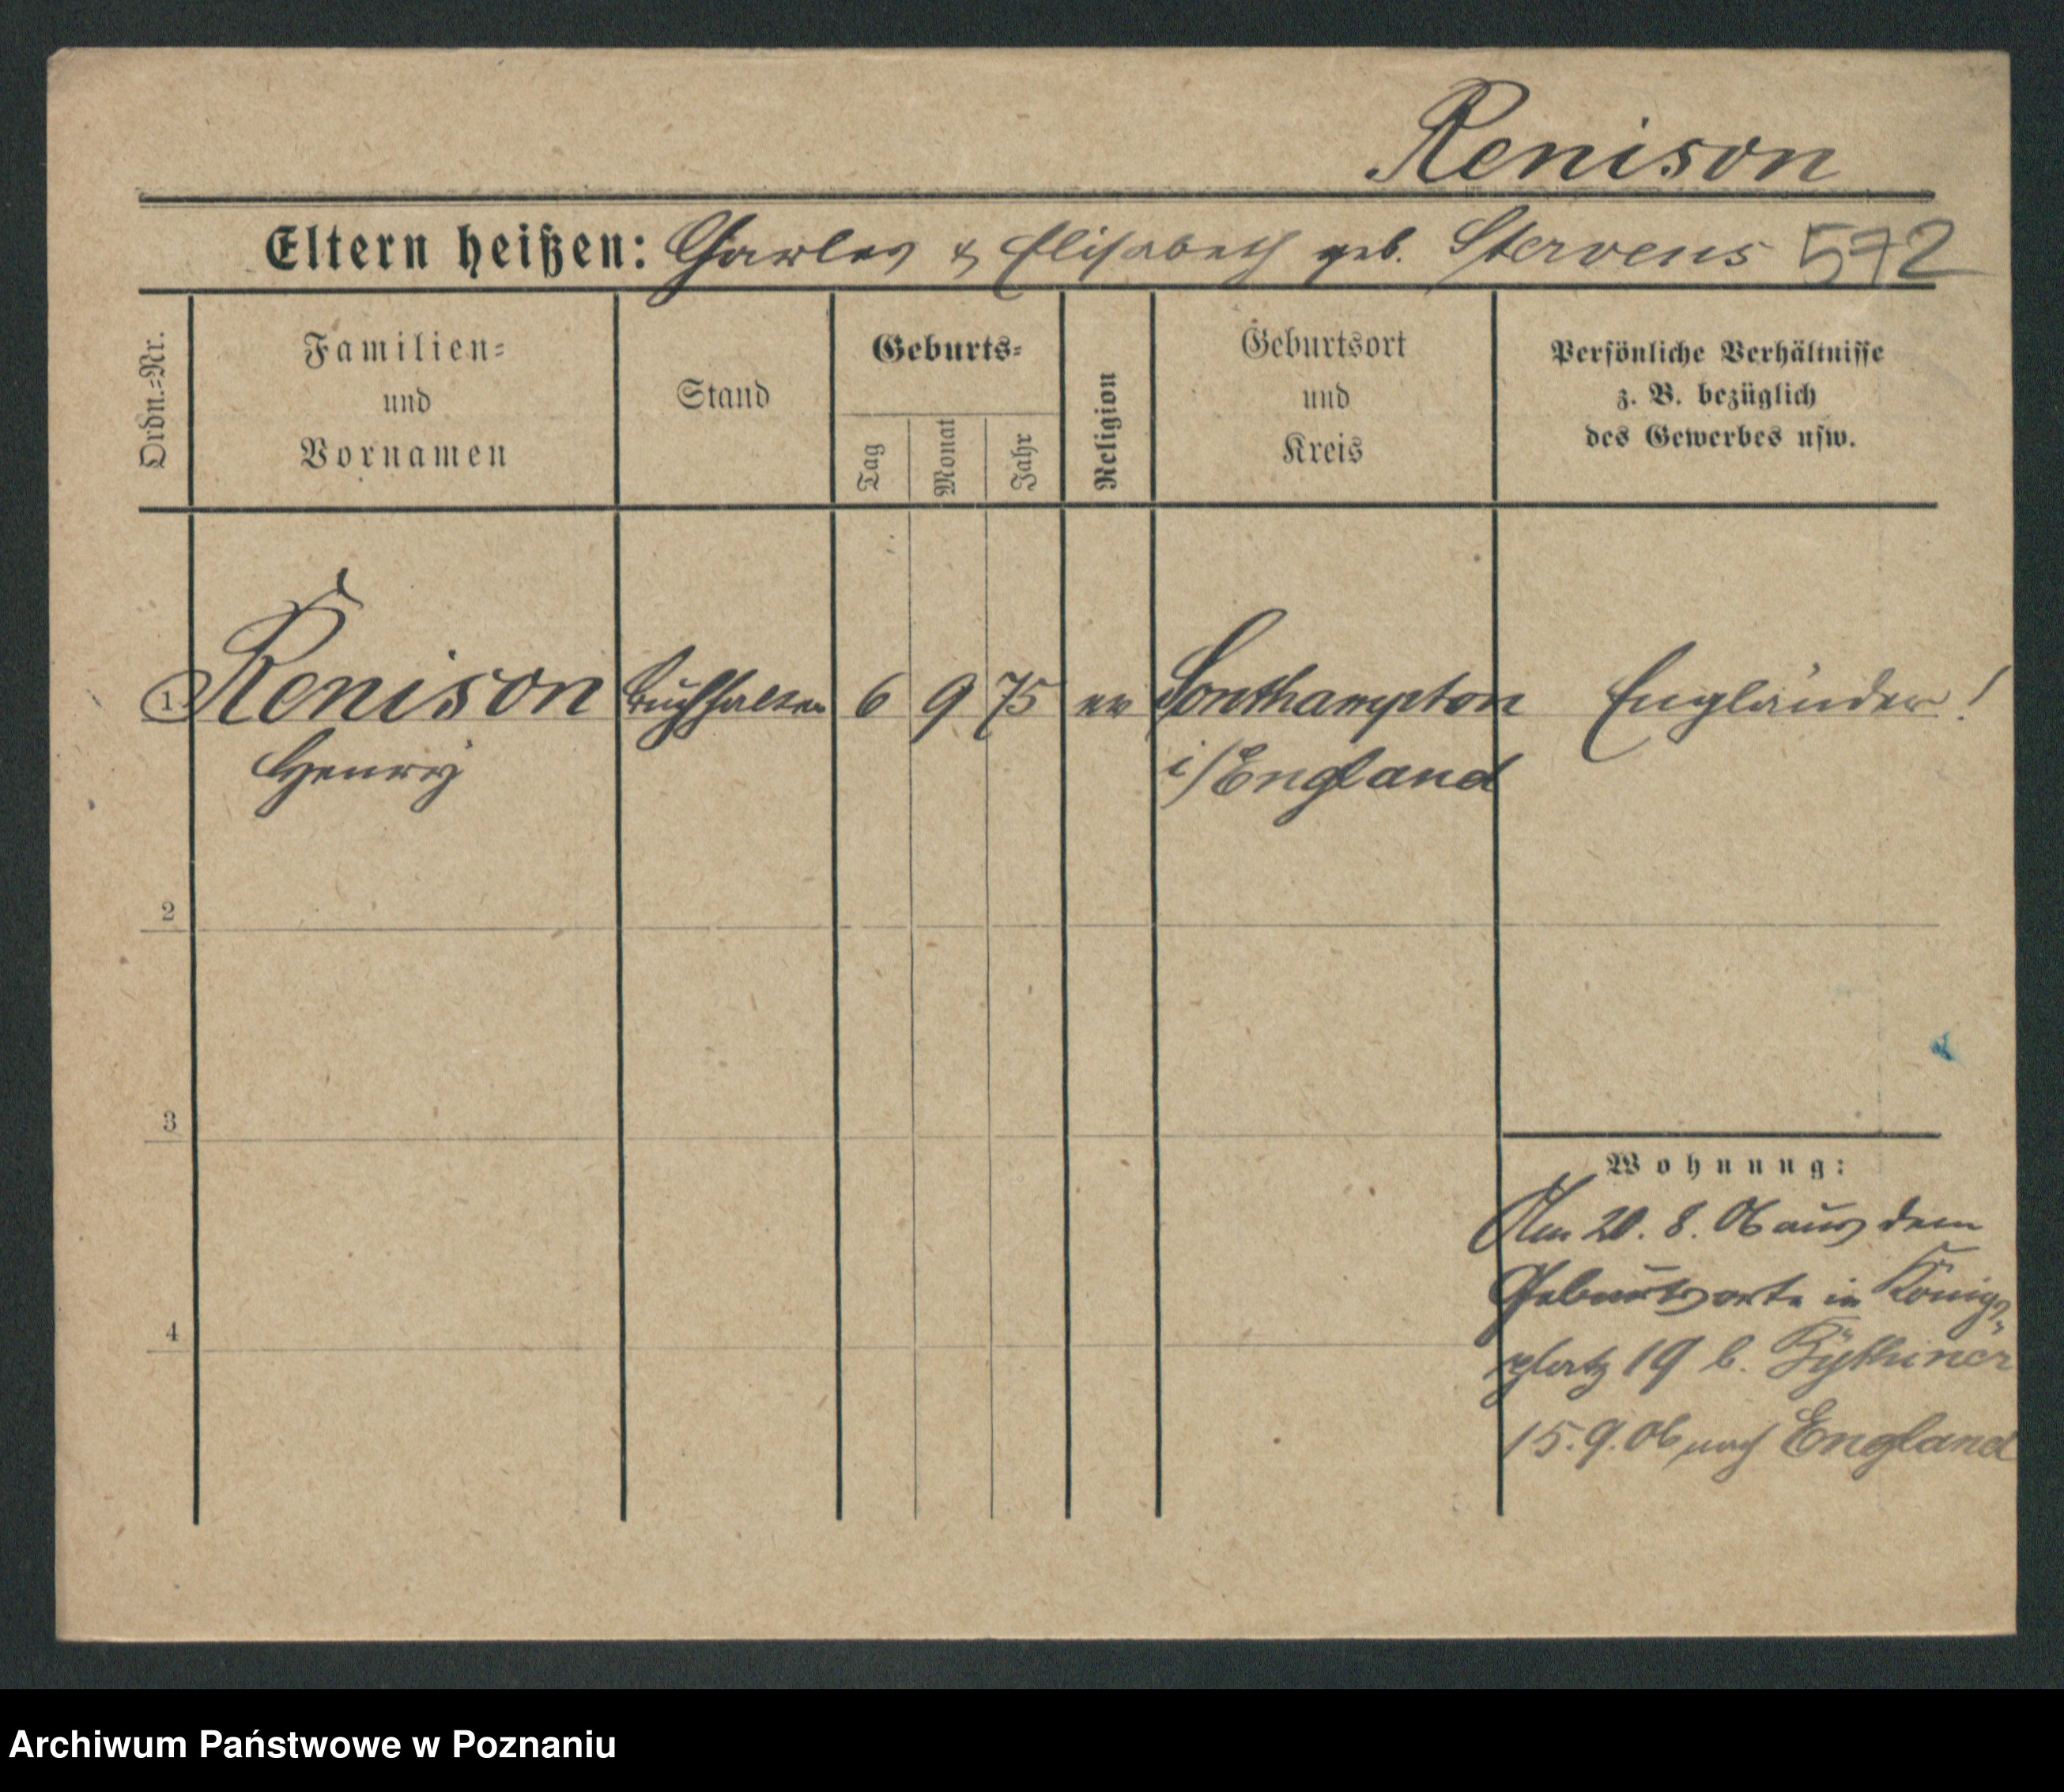 Renison
Eltern heißen: Charles & Elisabeth geb. Stervens 572
Ordn.=Nr.
Familien=
und
Vornamen
Stand
Geburts=
Tag
Monat
Jahr
Religion
Geburtsort
und
Kreis
Persönliche Verhältnisse
z. B. bezüglich
des Gewerbes usw.
1 Renison Buchhalter 6 9 75 ev Southampton Engländer!
Henry i/England
2
3
Wohnung:
Am 20. 8. 06 aus dem
Geburtsorte in Königs„
4
platz 19 b.
15.9.06 nach England
Archiwum Państwowe w Poznaniu